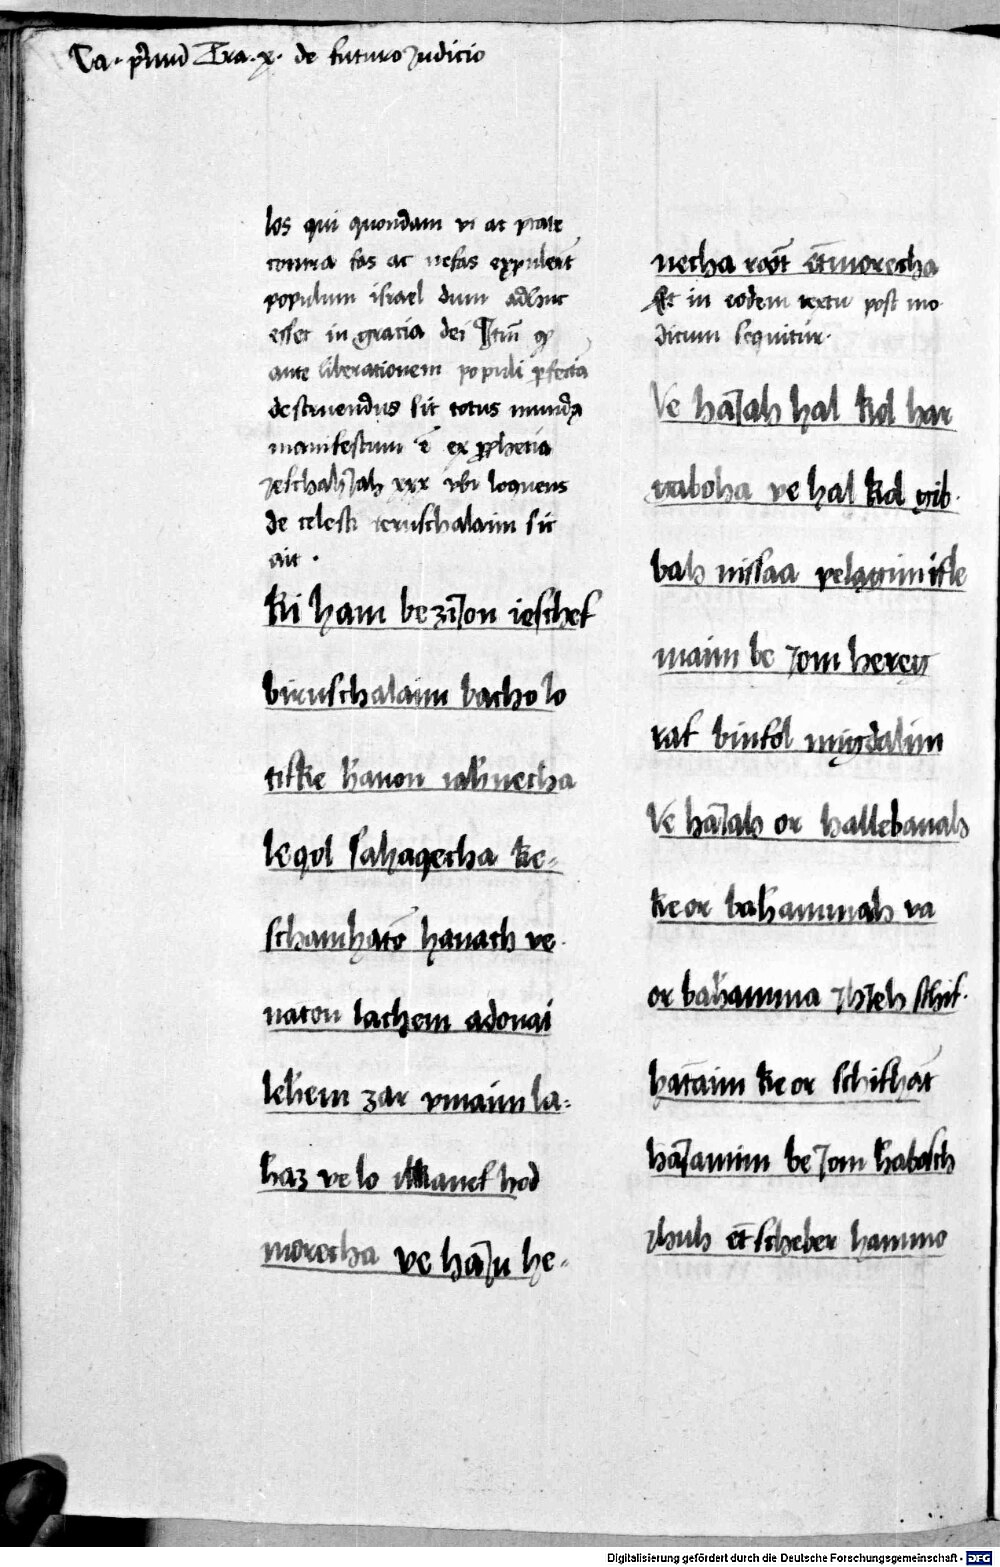 Ca. primum Tra. x. de futuro Judicio
los qui quondam vi ac ptate
contra fas ac nefas expulerat
populum israel dum adhuc
esset in gracia dei
ante liberationem populi perfecta
destruendus sit totus mundus
manifestum ē ex prophecia
Jeschahjah xxx vbi loquens
de celesti ieruschalaim sic
ait .
ki ham bezijon ieschef
biruschalaim bacho lo
tifke hanon iahnecha
leqol sahaqecha ke-
schamhato hanach ve-
naton lachem adonai
lehem zar vmaim la-
haz ve lo hod
morecha ve haju he-
necha root et morecha
Et in eodem textu post mo-
dicum sequitur.
Ve hajah hal kol har
gaboha ve hal kol gib-
hah nissaa pelagim ifle
maim be jom hereg
raf binfol migdalim
Ve hajah or hallebanah
ke or bahammah va
or bahamma jhjeh schif-
hataim ke or schifhat
hajamim be jom habosch
Jhuh et scheber hammo
Digitalisierung gefördert durch die Deutsche Forschungsgemeinschaft - DFG